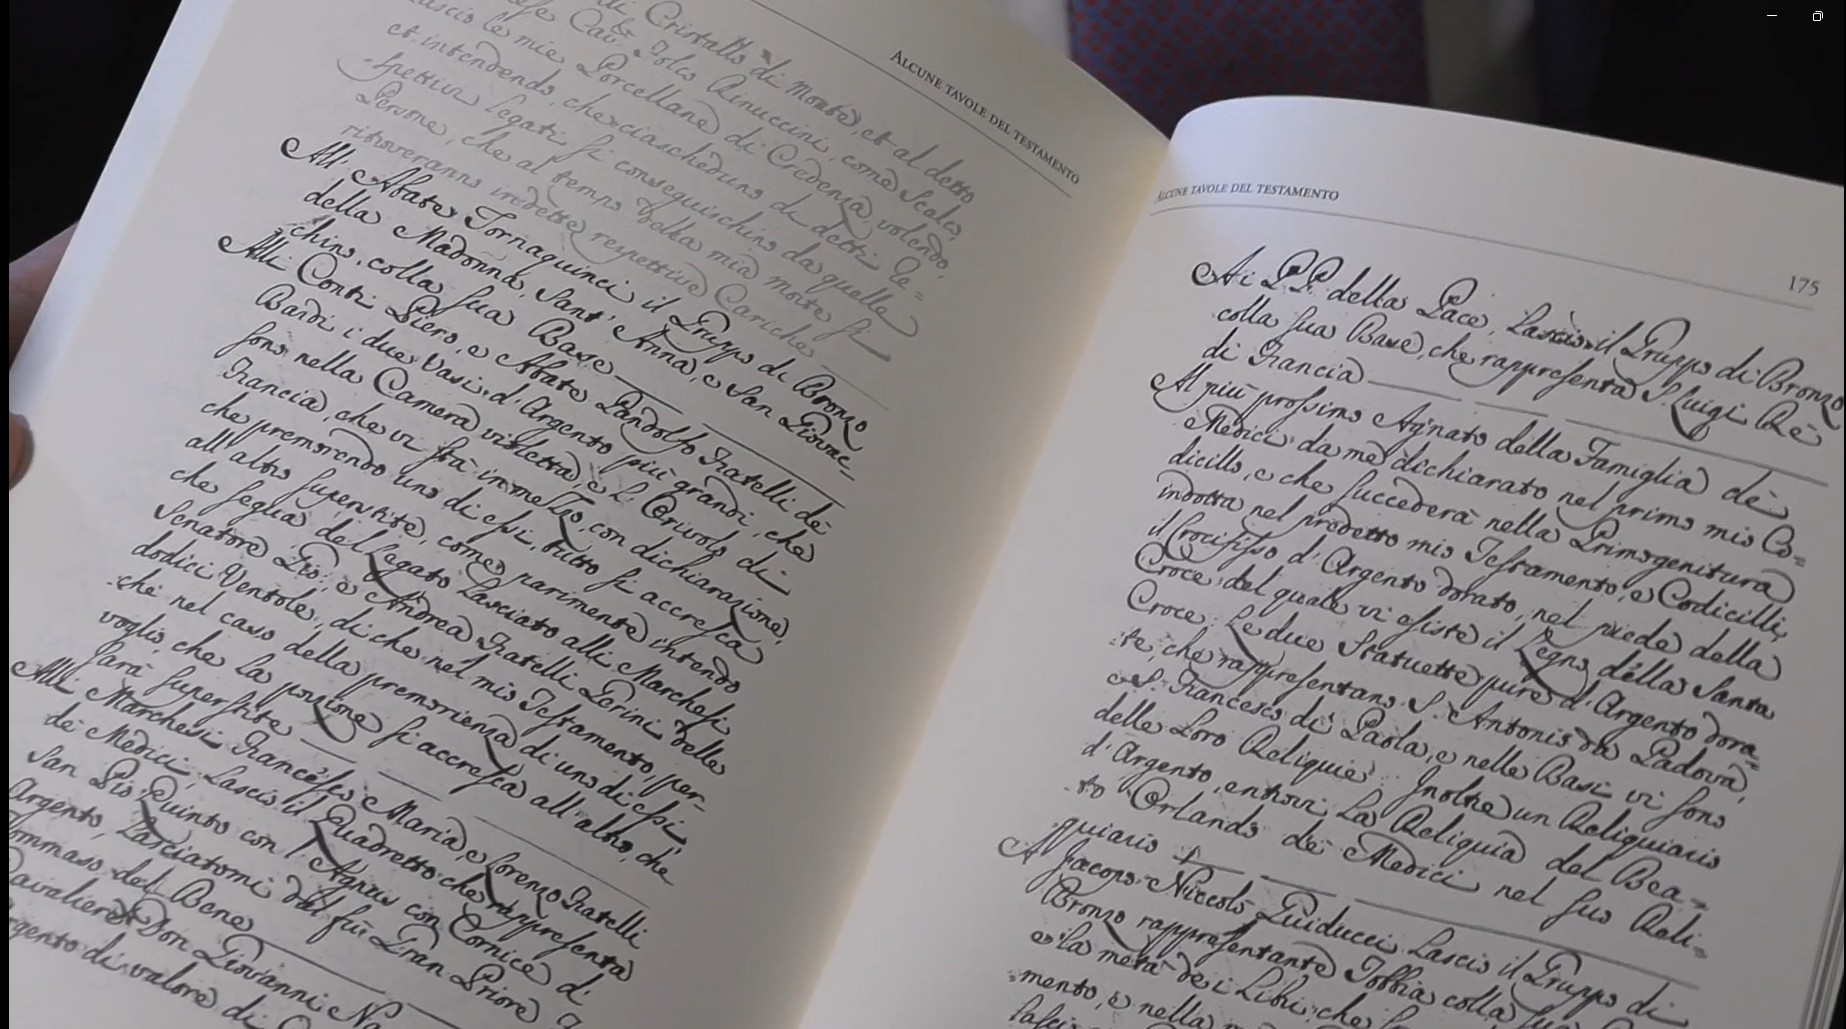 ALCUNE TAVOLE DEL TESTAMENTO
di Cristallo di Monte, et al detto
Cau.re Folco Rinuccini, come Scalco,
lascio le mie Porcellane di Credenza, volendo,
et intendendo, che ciascheduno di detti Le=
=spettivi Legati si conseguischino da quelle
Persone, che al tempo della mia morte si
ritroveranno indette respettive Cariche
All' Abate Tornaquinci il Gruppo di Bronzo
della Madonna, Sant' Anna, e San Giovac=
chino, colla sua Base
Alli Conti Piero, e Abate Pandolfo Fratelli de
Bardi i due Vasi d'Argento più grandi, che
sono nella Camera violetta, e l' Orivolo di
Francia, che vi stà in mezzo, con dichiarazione,
che premorendo uno di essi, tutto si accresca
all' altro superstite, come parimente intendo
che segua del Legato lasciato alli Marchesi
Senatore Pio, e Andrea Fratelli Gerini delle
dodici Ventole, di che nel mio Testamento, per=
=chè nel caso della premorienza di uno di essi
voglio, che la porzione si accresca all' altro, che
sarà superstite
Alli Marchesi Francesco Maria, e Lorenzo Fratelli
de Medici, lascio il Quadretto che rappresenta
San Pio Quinto con l' Agnus con Cornice d'
Argento, lasciatomi dal fù Gran Priore
Tommaso del Bene
Cavaliere Don Giovanni
Argento di valore di
ALCUNE TAVOLE DEL TESTAMENTO
175
Ai PP. della Pace, lascio il Gruppo di Bronzo
colla sua Base, che rappresenta S. Luigi Rè
di Francia
Al più prossimo Agnato della Famiglia de
Medici da me dichiarato nel primo mio Co=
dicillo, e che succederà nella Primogenitura
indotta nel prodetto mio Testamento, e Codicilli,
il Crocifisso d'Argento dorato, nel piede della
Croce del quale vi esiste il Legno della Santa
Croce. Le due Statuette pure d'Argento dora=
=te, che rappresentano S. Antonio da Padova,
e S. Francesco di Paola, e nelle Basi vi sono
delle Loro Reliquie. Inoltre un Reliquiario
d'Argento, entrovi la Reliquia del Bea=
=to Orlando de Medici nel suo Reli=
quiario
A Jacopo Niccolò Guiducci Lascio il Gruppo di
Bronzo rappresentante Tobbia colla sua
e la metà de i Libri, che
=mento, e nella
lasci